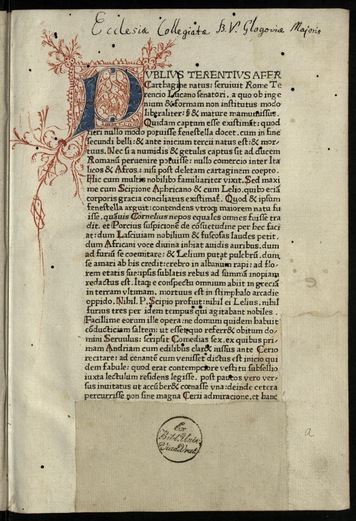 Ecclesia Collegiata B. V. Glogoviæ Majoris
PVBLIVS TERENTIVS AFER
Carthagine natus: seruiuit Rome Te
rencio Lucano senatori, a quo ob inge
nium & formam non institutus modo
liberaliter: sed & mature manumissus.
Quidam captum esse existimant: quod
fieri nullo modo potuisse fenestella docet, cum in fine
secundi belli: & ante initium tercii natus est & mor-
tuus. Nec si a numidis & getulis captus sit ad ducem
Romanum peruenire potuisse: nullo comercio inter Ita
licos & Afros: nisi post deletam cartaginem coepto.
Hic cum multis nobilibus familiariter vixit. Sed maxi
me cum Scipione Aphricano & cum Lelio, quibus eciam
corporis gracia conciliatus existimatur. Quod & ipsum
fenestella arguit: contendens vtroque maiorem natu fu
isse, quamuis Cornelius nepos equales omnes fuisse tra
dit, et Porcius suspicione de consuetudine per hec faci
at: dum Lasciuiam nobilium & fucosas laudes petit.
dum Africani voce diuina inhiat auidis auribus, dum
ad furium se coenitare: & Lelium putat pulchrum, dum
se amari ab his credit: crebro in albanum rapi: ad flo
rem etatis sue: ipsus sublatis rebus ad summam inopiam
redactus est. Itaque e conspectu omnium abiit in grecia
in terram vltimam, mortuus est in stimphalo arcadie
oppido. Nihil P. Scipio profuit: nihil ei Lelius, nihil
furius tres per idem tempus qui agitabant nobiles.
Facillime eorum ille opera ne domum quidem habuit
conducticiam saltem: ut esset quo referret obitum do-
mini Seruulus: scripsit Comedias sex, ex quibus pri-
mam Andriam cum edilibus daret, iussus ante Cerio
recitare: ad cenantem cum venisset dictus est inicio qui
dem fabule: quod erat contempciore vestitu subsellio
iuxta lectulum residens legisse. post paucos vero ver-
sus inuitatus ut accumberet cenasse vna: deinde cetera
percurrisse non sine magna Cerii admiracione, et hanc
Ex
Biblioth.
a